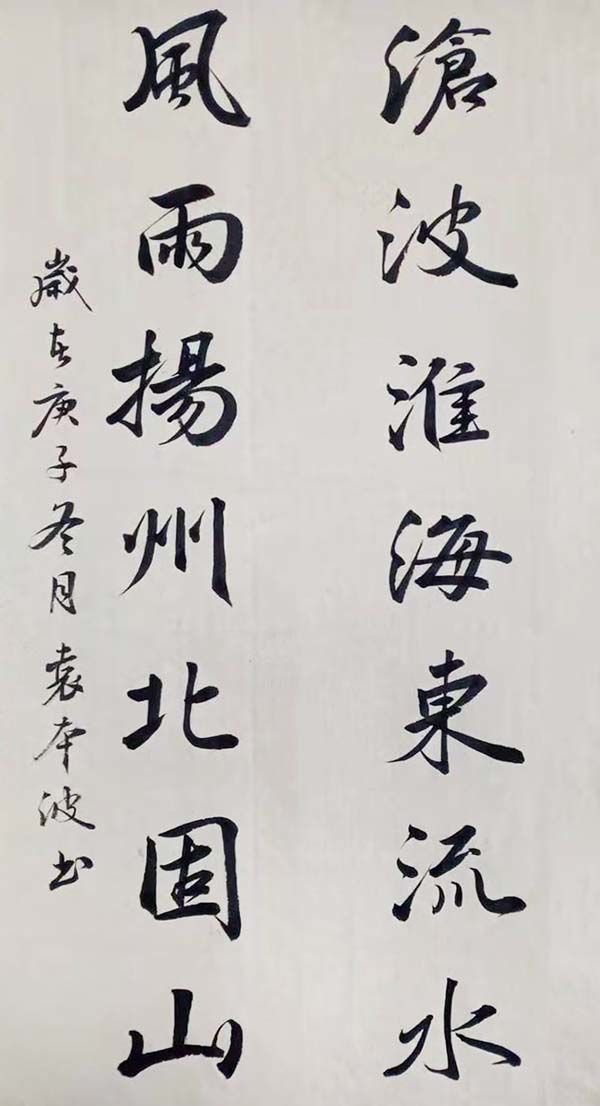 滄波淮海東流水
風雨揚州北固山
歲在庚子冬月袁本波书